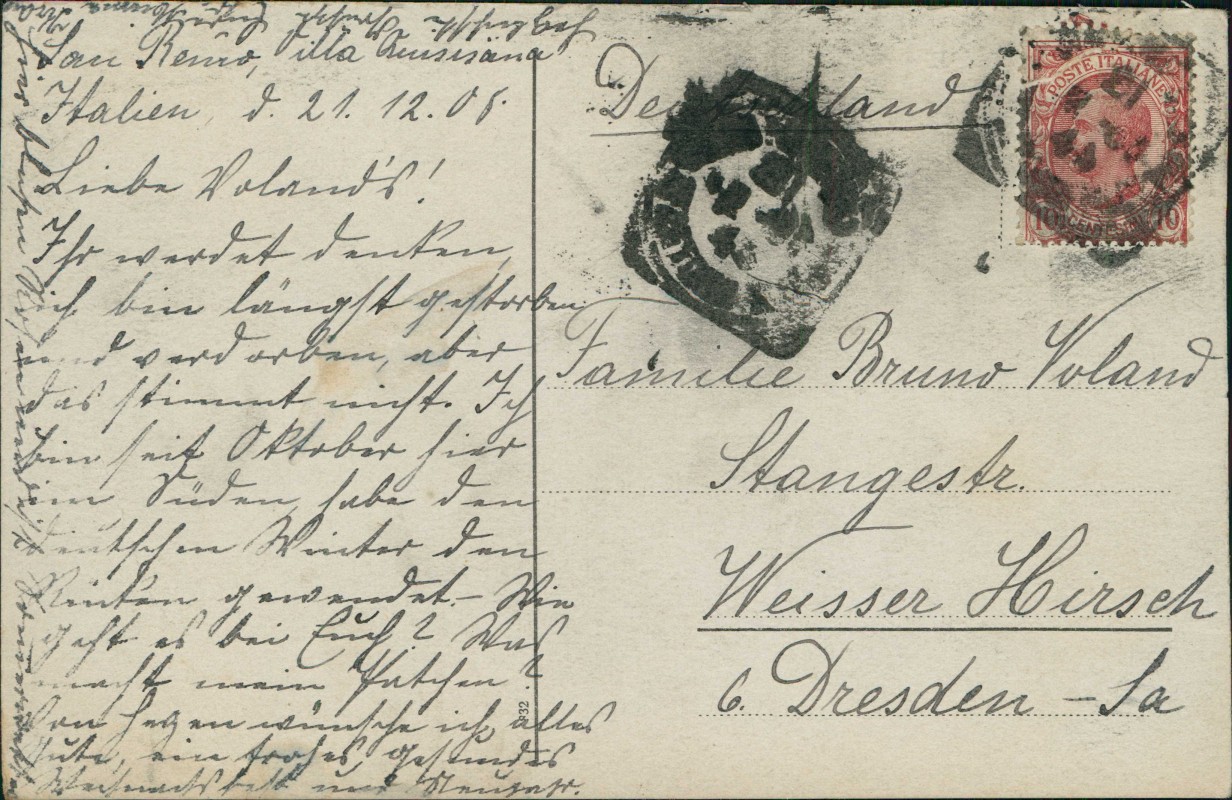 San Remo, Villa
Italien, d. 21. 12. 08
Liebe Voland's!
Ihr werdet denken,
ich bin längst gestorben
und verdorben, aber
das stimmt nicht. Ich
bin seit Oktober hier
im Süden, habe den
deutschen Winter den
Rücken gewendet. – Wie
geht es bei Euch? Was
macht mein Patchen?
Von Herzen wünsche ich alles
Gute, ein frohes, gesundes
Weihnachtsfest und Neujahr.
Hier blühen Rosen
Deutschland
POSTE ITALIANE
10 CENTESIMI 10
Familie Bruno Voland
Stangestr.
Weisser Hirsch
b. Dresden – Sa
932